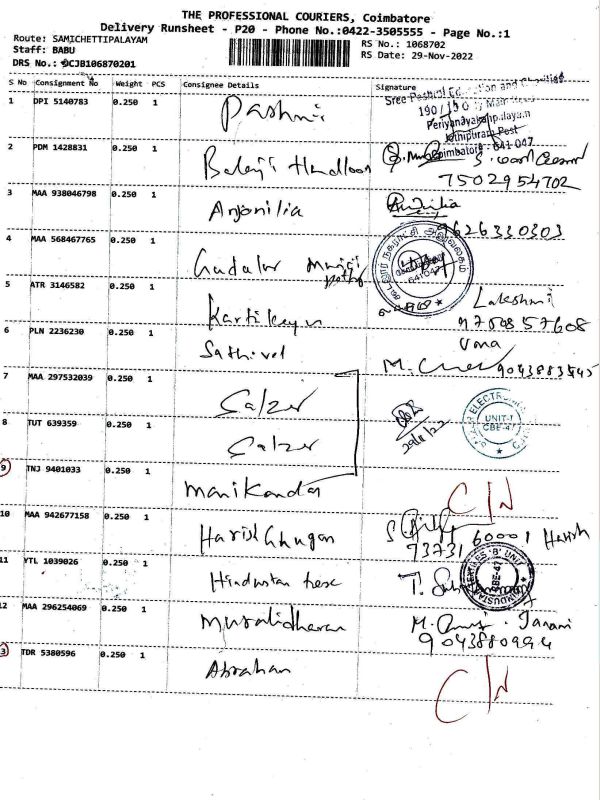 THE PROFESSIONAL COURIERS, Coimbatore
Delivery Runsheet - P20 - Phone No.:0422-3505555 - Page No.:1
Route: SAMICHETTIPALAYAM
RS No.: 1068702
Staff: BABU
RS Date: 29-Nov-2022
DRS No.: DCJB106870201
S No Consignment No Weight PCS Consignee Details Signature
1 DPI 5140783 0.250 1 Pashmi
Sree
190/
Periyanayakanpalayam
Jothipuram Post
Coimbatore - 641 047
2 PDM 1428831 0.250 1 Balaji Handloom
7502954702
3 MAA 938046798 0.250 1 Anjonilia
9626330303
4 MAA 568467765 0.250 1 Gudalur
கூடலூர் நகராட்சி அலுவலகம்
641047
5 ATR 3146582 0.250 1 Kartikeyn Lakshmi
6 PLN 2236230 0.250 1 Sathivel Uma
7 MAA 297532039 0.250 1 Salzer
8 TUT 639359 0.250 1 Salzer
29/11/22
SALZER ELECTRONICS
UNIT-1
CBE-47
9 TNJ 9401033 0.250 1 Manikandan C/N
10 MAA 942677158 0.250 1 Harish
73731 60001 Harish
11 YTL 1039026 0.250 1 Hindustan
'B' UNIT
CBE-47
12 MAA 296254069 0.250 1 Muralidharan M. Janani
9043880994
3 TDR 5380596 0.250 1 Abrahan C/N